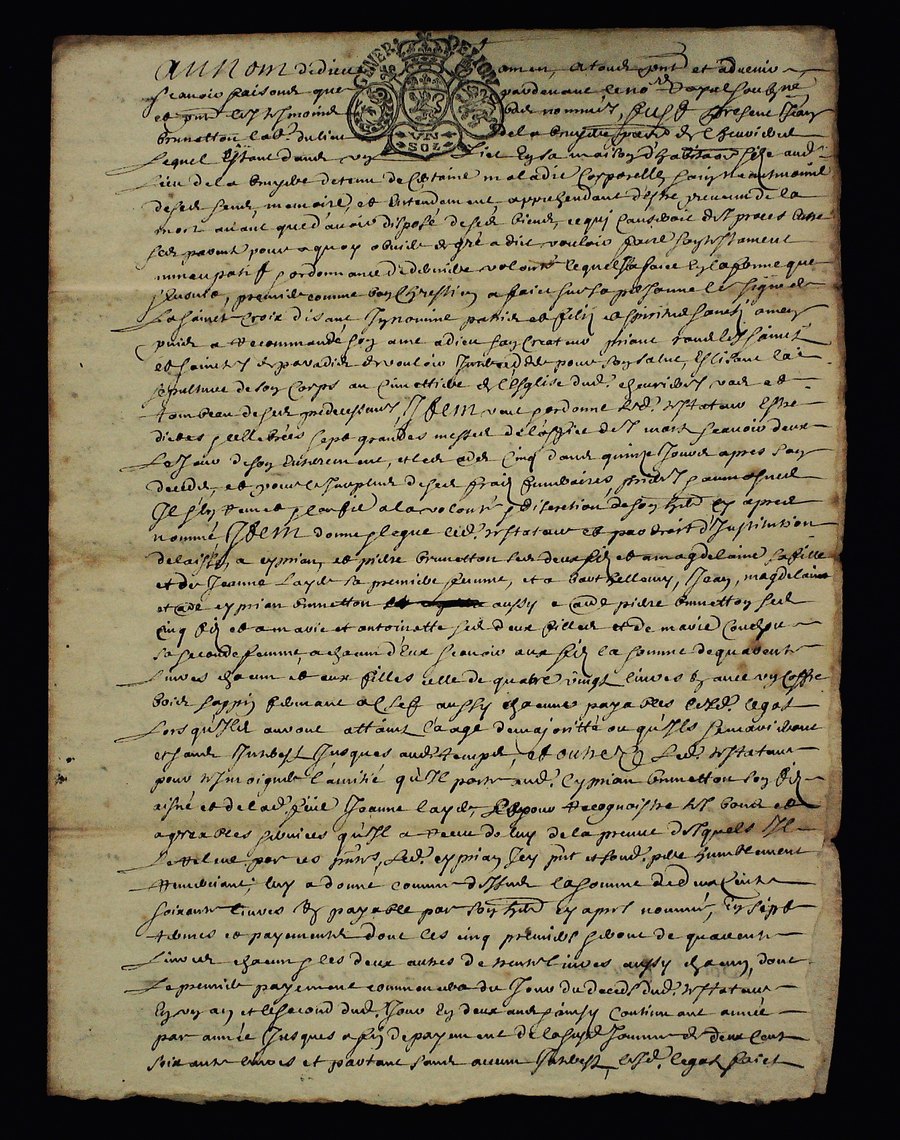 GENER. DE LION
VN
SOL
AU NOM de dieu amen, a tous et advenir
scavoir faisons que pardevant le no.re Royal soubz.né
et les tesmoings bas nommés, fust present
brunetton lab.r du lieu de la bruyere
Lequel estant dans un Lict en sa maison d'habitaon aud.
Lieu de la bruyere detenu de certaine maladie corporelle, sain neantmoins
de ses sens, memoire, et entendement, apprehendant d'estre prevenu de la
mort avant que d'avoir disposé de ses biens, ce qui causeroit des proces entre
ses parents pour a quoy obvier de gré a dit vouloir faire son testament
nuncupatif & ordonnance de derniere volonté lequel a faict en la forme que
s'ensuit, premier comme bon Chrestien a faict sur sa personne le signe de
La saincte Croix disant In nomine patris et filii et spiritus sancti amen
puis a recommandé son ame a dieu son createur priant tous les saincts
et sainctes de paradis de vouloir interceder pour son salut, Eslisant la
sepulture de son corps au cimettiere de l'Esglise dud.
tombeau de ses predecesseurs, ITEM veut & ordonne led. testateur estre
dictes & cellebrées sept grandes messes de l'office des morts scavoir deux
Le jour de son enterrement, et les cinq dans quinze jours apres son
deces, et pour le surplus de ses fraix funeraires, prieres & aumosnes
Il s'en remet a la volonté & discretion de son her. cy apres
nommé ITEM donne & legue led. testateur et par droit d'Institution
delaisse a cyprian et pierre brunetton ses deux fils et a magdelaine sa fille
et de Jeanne Layde sa premiere femme, et a barthellemy, Jean, magdelaine
et cyprian brunetton aussy pierre brunetton ses
cinq fils et a marie et antoinette ses deux filles et de marie
sa seconde femme, a chacun d'eux scavoir aux fils la somme de quarente
Livres chacun et aux filles celle de quatre vingt livres & avec un coffre
bois sappin fermant a clef aussy chacune payables lesd. legats
Lors qu'ils auront attaint l'aage de majoritté ou qu'ils se marieront
et sans Interest Jusques aud. temps, et outre ce Led. testateur
pour tesmoigner l'amitié qu'il porte aud. Cyprian brunetton son fils
aisné et de lad. Jeanne layde, & pour recognoistre les bons et
agreables services qu'il a receu de luy de la preuve desquels Il
le releve par ces p.ntes, Led. cyprian Icy p.nt et son pere humblement
remerciant, luy a donné comme dessus la somme de deux Cents
soixante livres & payable par son her. cy apres nommé, En sept
termes et payements dont les cinq premiers seront de quarente
Livres chacun & les deux autres de trente livres aussy chacun, dont
Le premier payement commencera du Jour du deces dud. testateur
En un an et le second dud. Jour En deux ans & ainsy continuant année
par année Jusques a fin de payement de la susd. somme de deux Cent
soixante livres et partant sans aucun Interest, lesd. legats faict